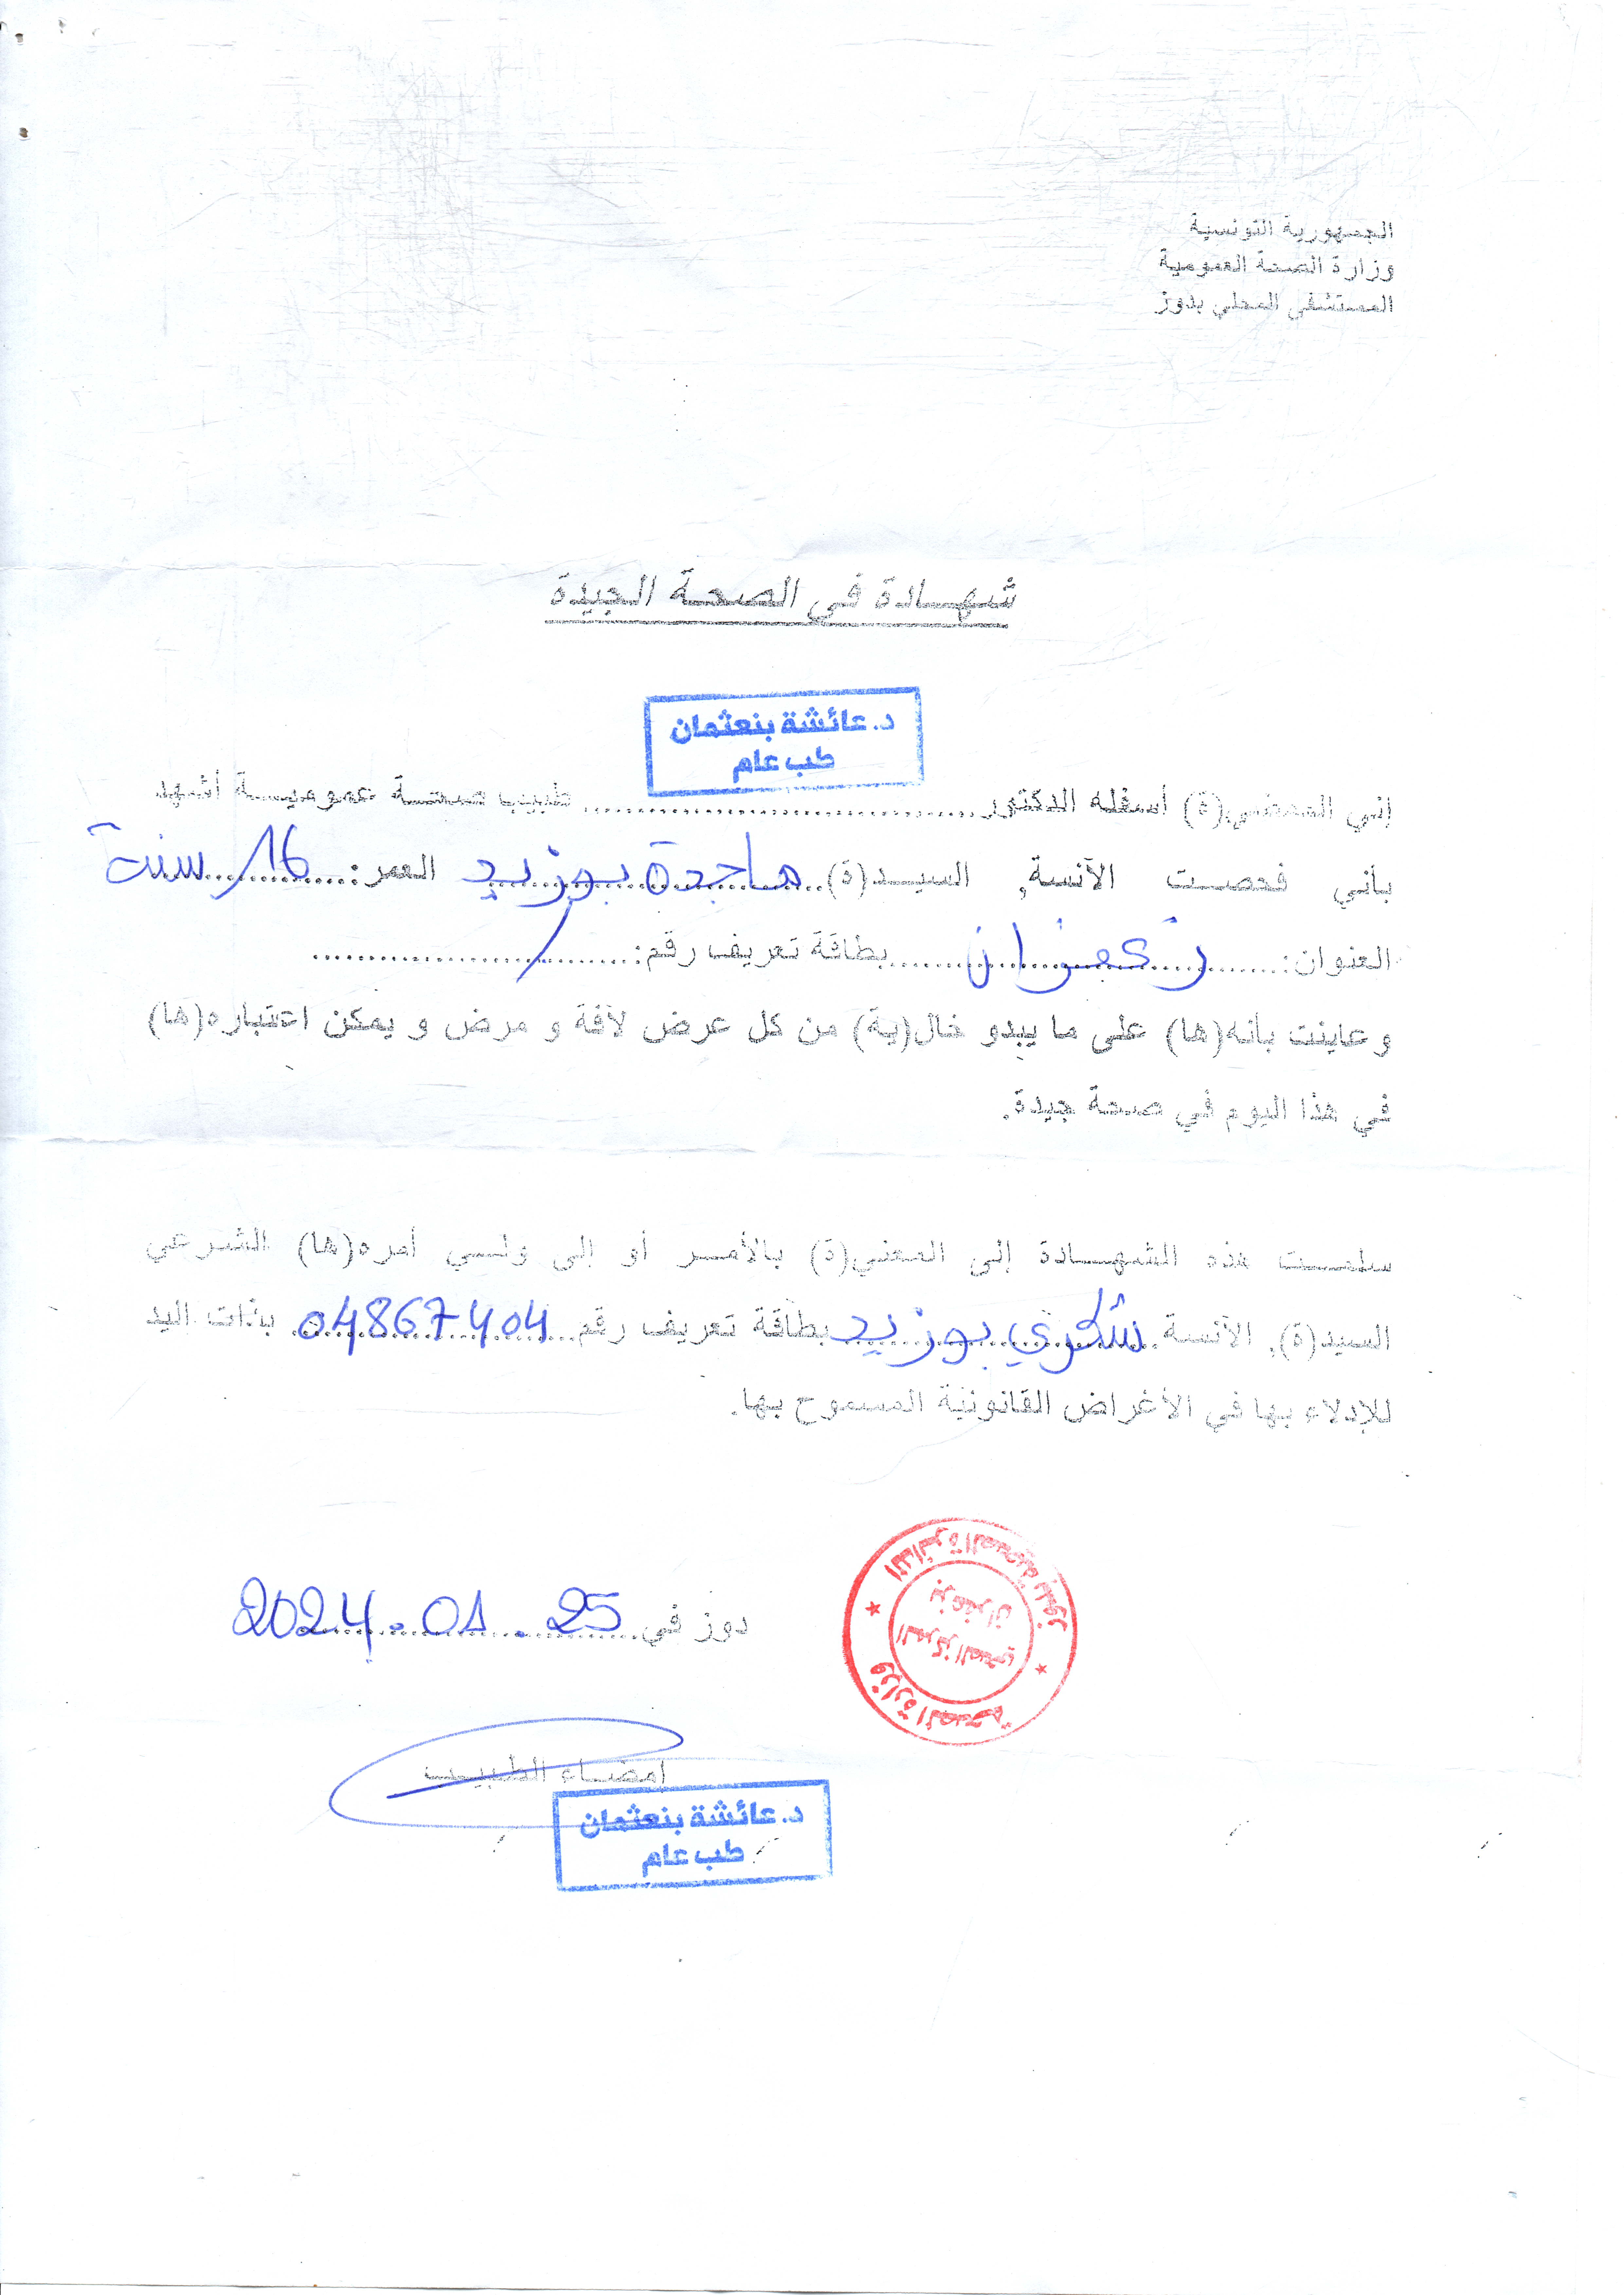 الجمهورية التونسية
وزارة الصحة العمومية
المستشفى المحلي بدوز
شهـــادة في الصحـة الجيدة
د. عائشة بنعثمان
طب عام
إني الممضي(ة) أسفله الدكتور........................ طبيب صحـة عموميـة أشهد
بأني فحصت الآنسة, السيـد(ة) هاجدة بوزيد العمر: 16 سنة
العنوان: زعفران بطاقة تعريف رقم: /
و عاينت بأنه(ها) على ما يبدو خال(ية) من كل عرض لآفة و مرض و يمكن اعتباره(ها)
في هذا اليوم في صحة جيدة.
سلمـت هذه الشهـادة إلى المعني(ة) بالأمـر أو إلى ولـي أمره(ها) الشرعي
السيد(ة), الآنسة شكري بوزيد بطاقة تعريف رقم 04867404 بذات اليد
للإدلاء بها في الأغراض القانونية المسموح بها.
دوز في 25 . 01 . 2024
وزارة الصحة
المركز الصحي
بزعفران
إمضـاء الطبيـب
د. عائشة بنعثمان
طب عام